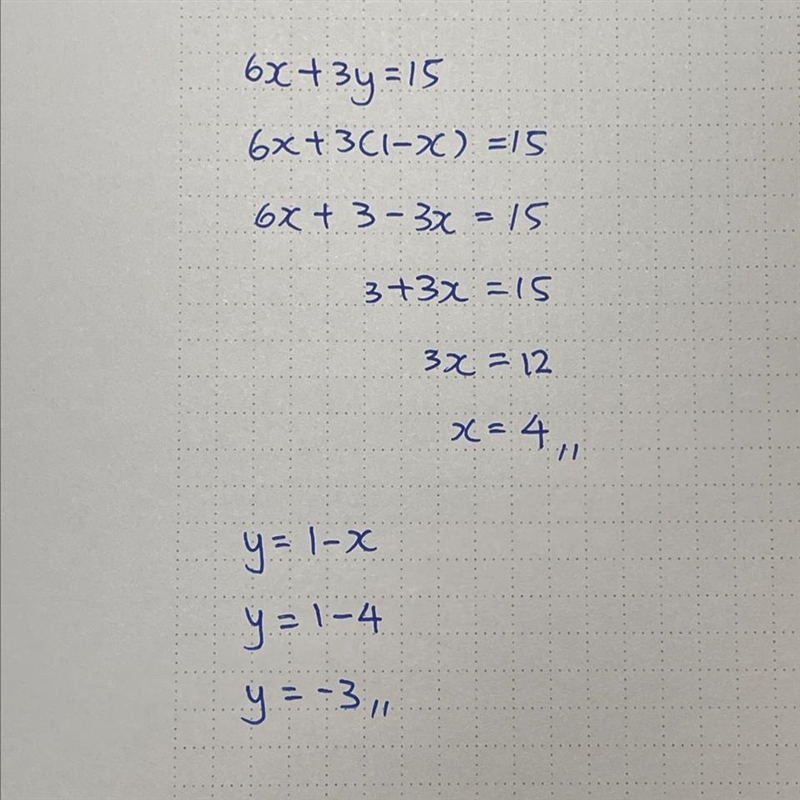 6x+3y=15
6x+3(1-x) =15
6x + 3 - 3x = 15
3+3x =15
3x = 12
x = 4,,
y = 1-x
y = 1-4
y = -3,,